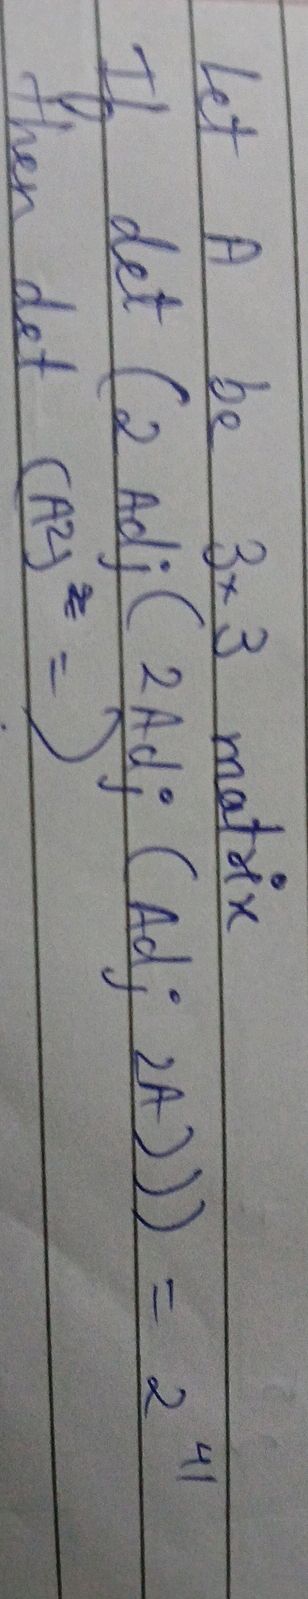 Let A be 3×3 matrix
If det (2 Adj ( 2 Adj ( Adj 2A))) = 2⁴¹
Then det (A2) = ?